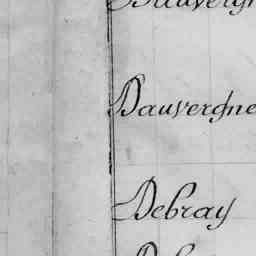 Dauvergne
Debray